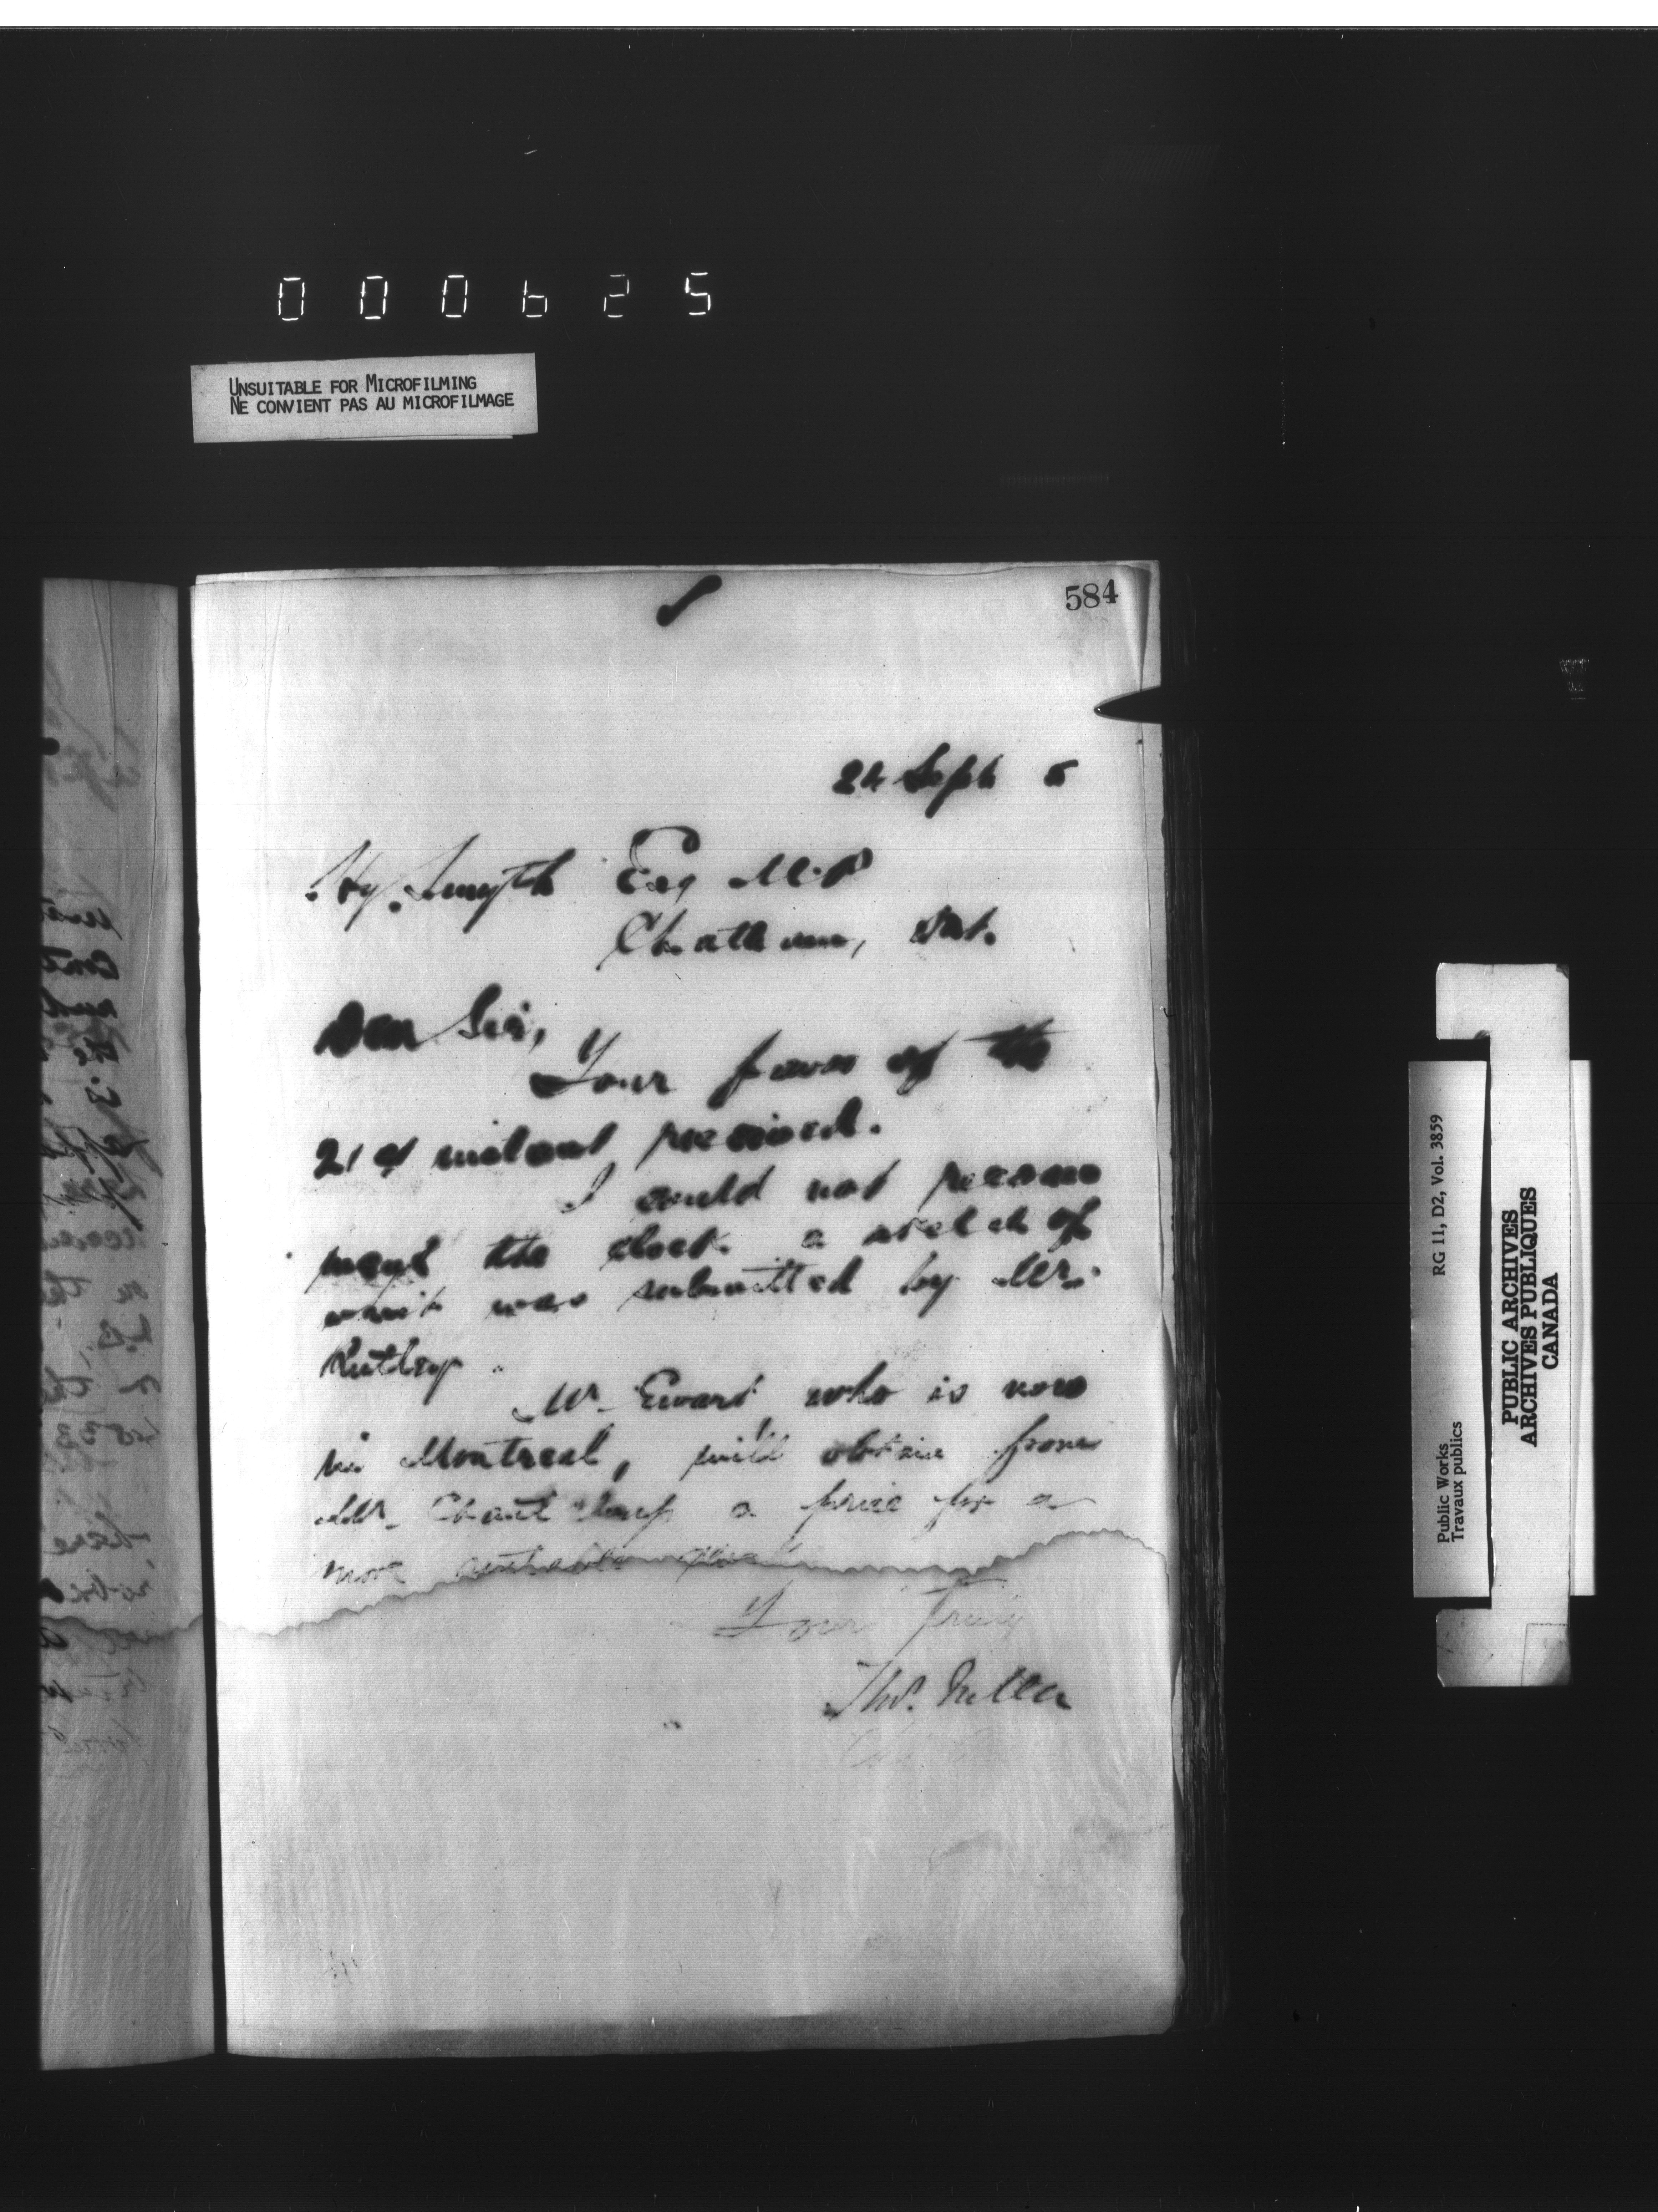 000625
UNSUITABLE FOR MICROFILMING
NE CONVIENT PAS AU MICROFILMAGE
584
24 Sept 5
Hy. Smyth Esq M.P
Chatham, Ont.
Dear Sir,
Your favor of the
21st instant received.
I could not recom
mend the clock a sketch of
which was submitted by Mr.
Mr. Ewart who is now
in Montreal, will obtain from
Mr. Chanteloup a price for a
more suitable
Yours Truly
Thos. Fuller
RG 11, D2, Vol. 3859
Public Works
Travaux publics
PUBLIC ARCHIVES
ARCHIVES PUBLIQUES
CANADA